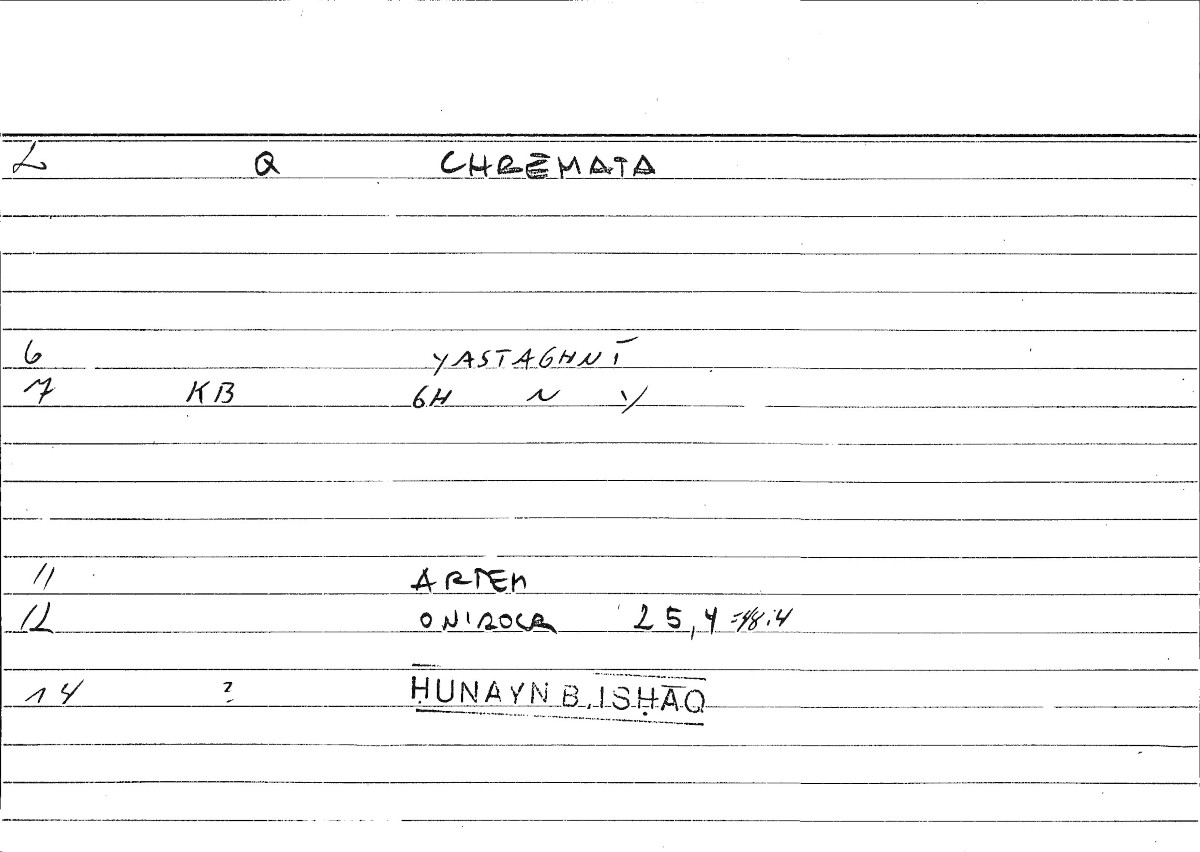 L Q CHRĒMATA
6 YASTAGHNĪ
7 KB GH N Y
11 ARTEM
12 ONIROCR 25,4 =48:4
14 ? ḤUNAYN B. ISḤĀQ